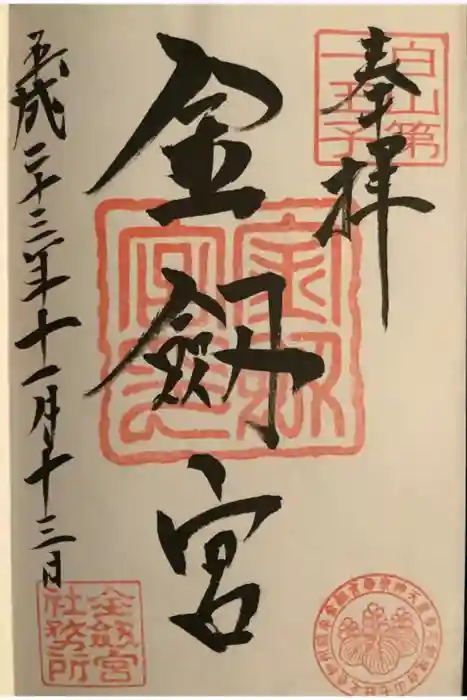 奉拝
白山第
一王子
金劔宮
平成二十三年十一月十三日
金劔宮
社務所